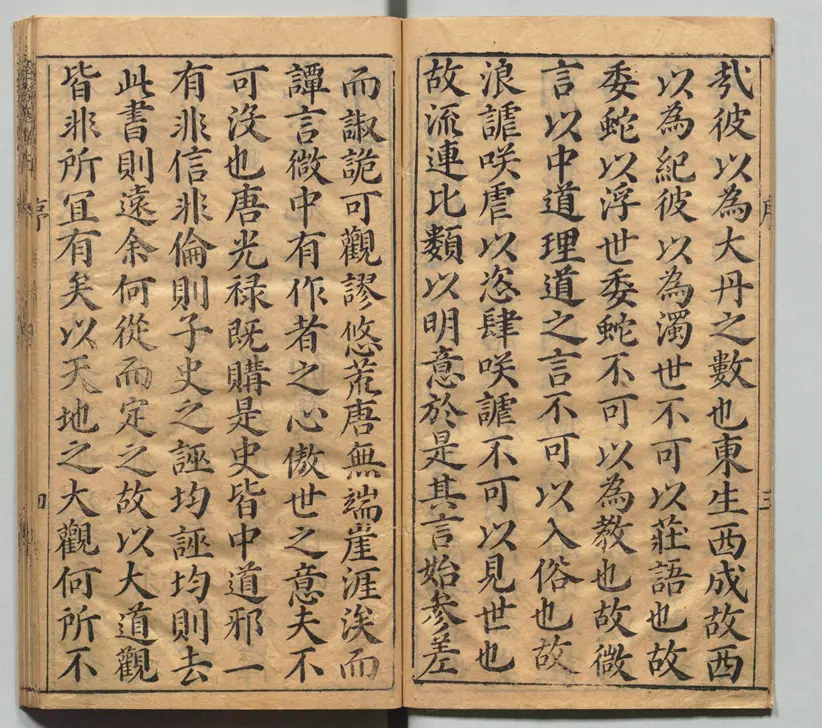 哉彼以為大丹之數也東生西成故西
以為紀彼以為濁世不可以莊語也故
委蛇以浮世委蛇不可以為教也故微
言以中道理道之言不可以入俗也故
浪謔咲虐以恣肆咲謔不可以見世也
故流連比類以明意於是其言始參差
而諔詭可觀謬悠荒唐無端崖涯涘而
譚言微中有作者之心傲世之意夫不
可沒也唐光祿既購是史皆中道邪一
有非信非倫則子史之誣均誣均則去
此書則遠余何從而定之故以大道觀
皆非所宜有矣以天地之大觀何所不
序
三
序
四